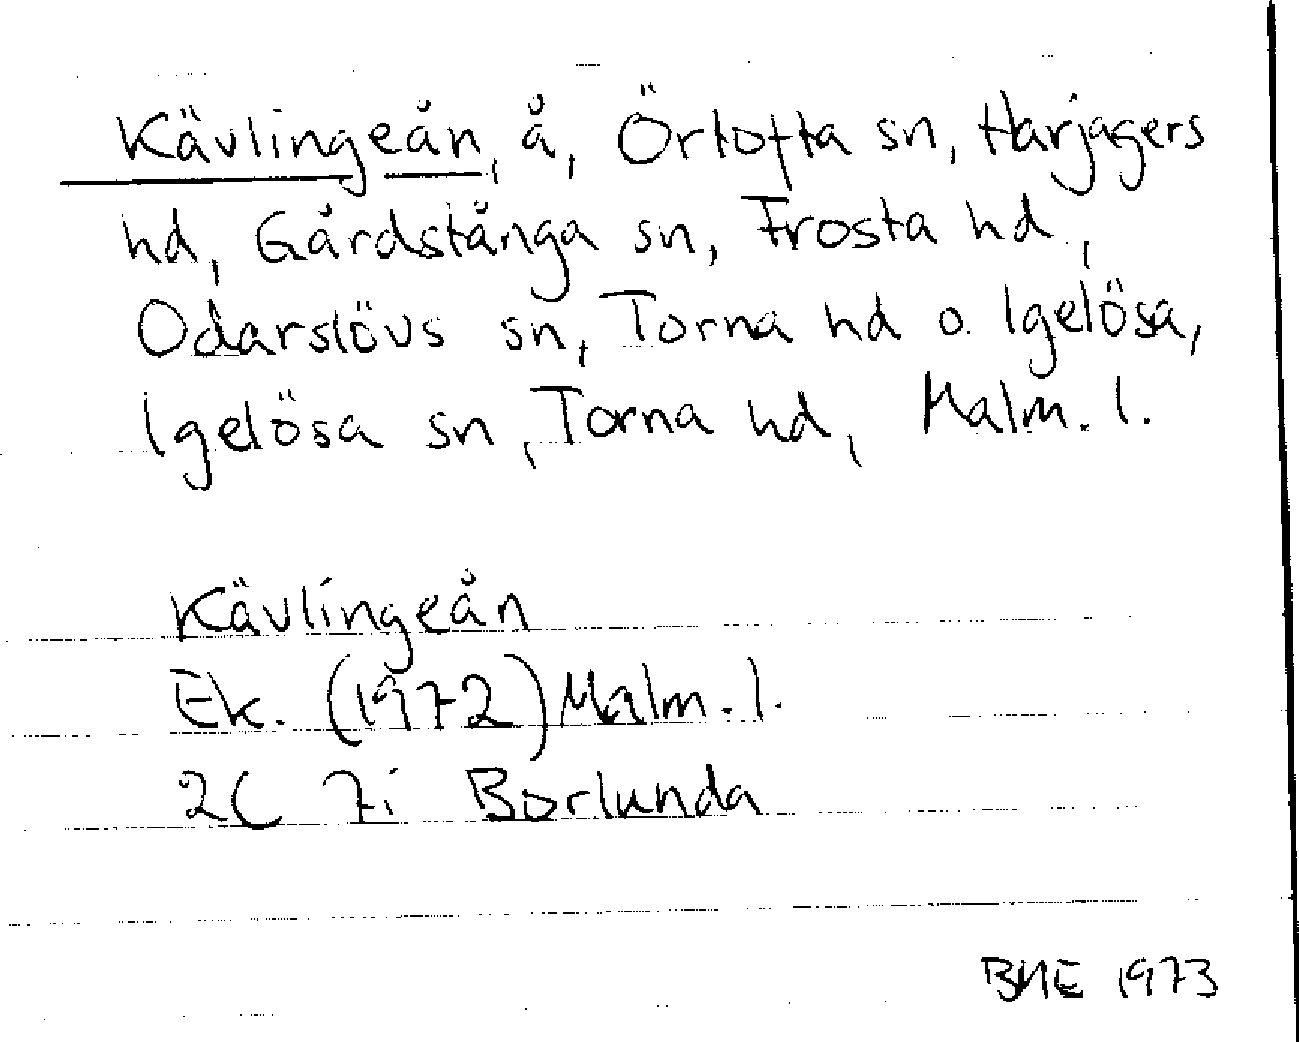 Kävlingeån, å, Örtofta sn, Harjagers
hd, Gårdstånga sn, Frosta hd,
Odarslövs sn, Torna hd o. Igelösa,
Igelösa sn, Torna hd, Malm. l.
Kävlingeån
Ek. (1972) Malm. l.
2C 7i Borlunda
BME 1973